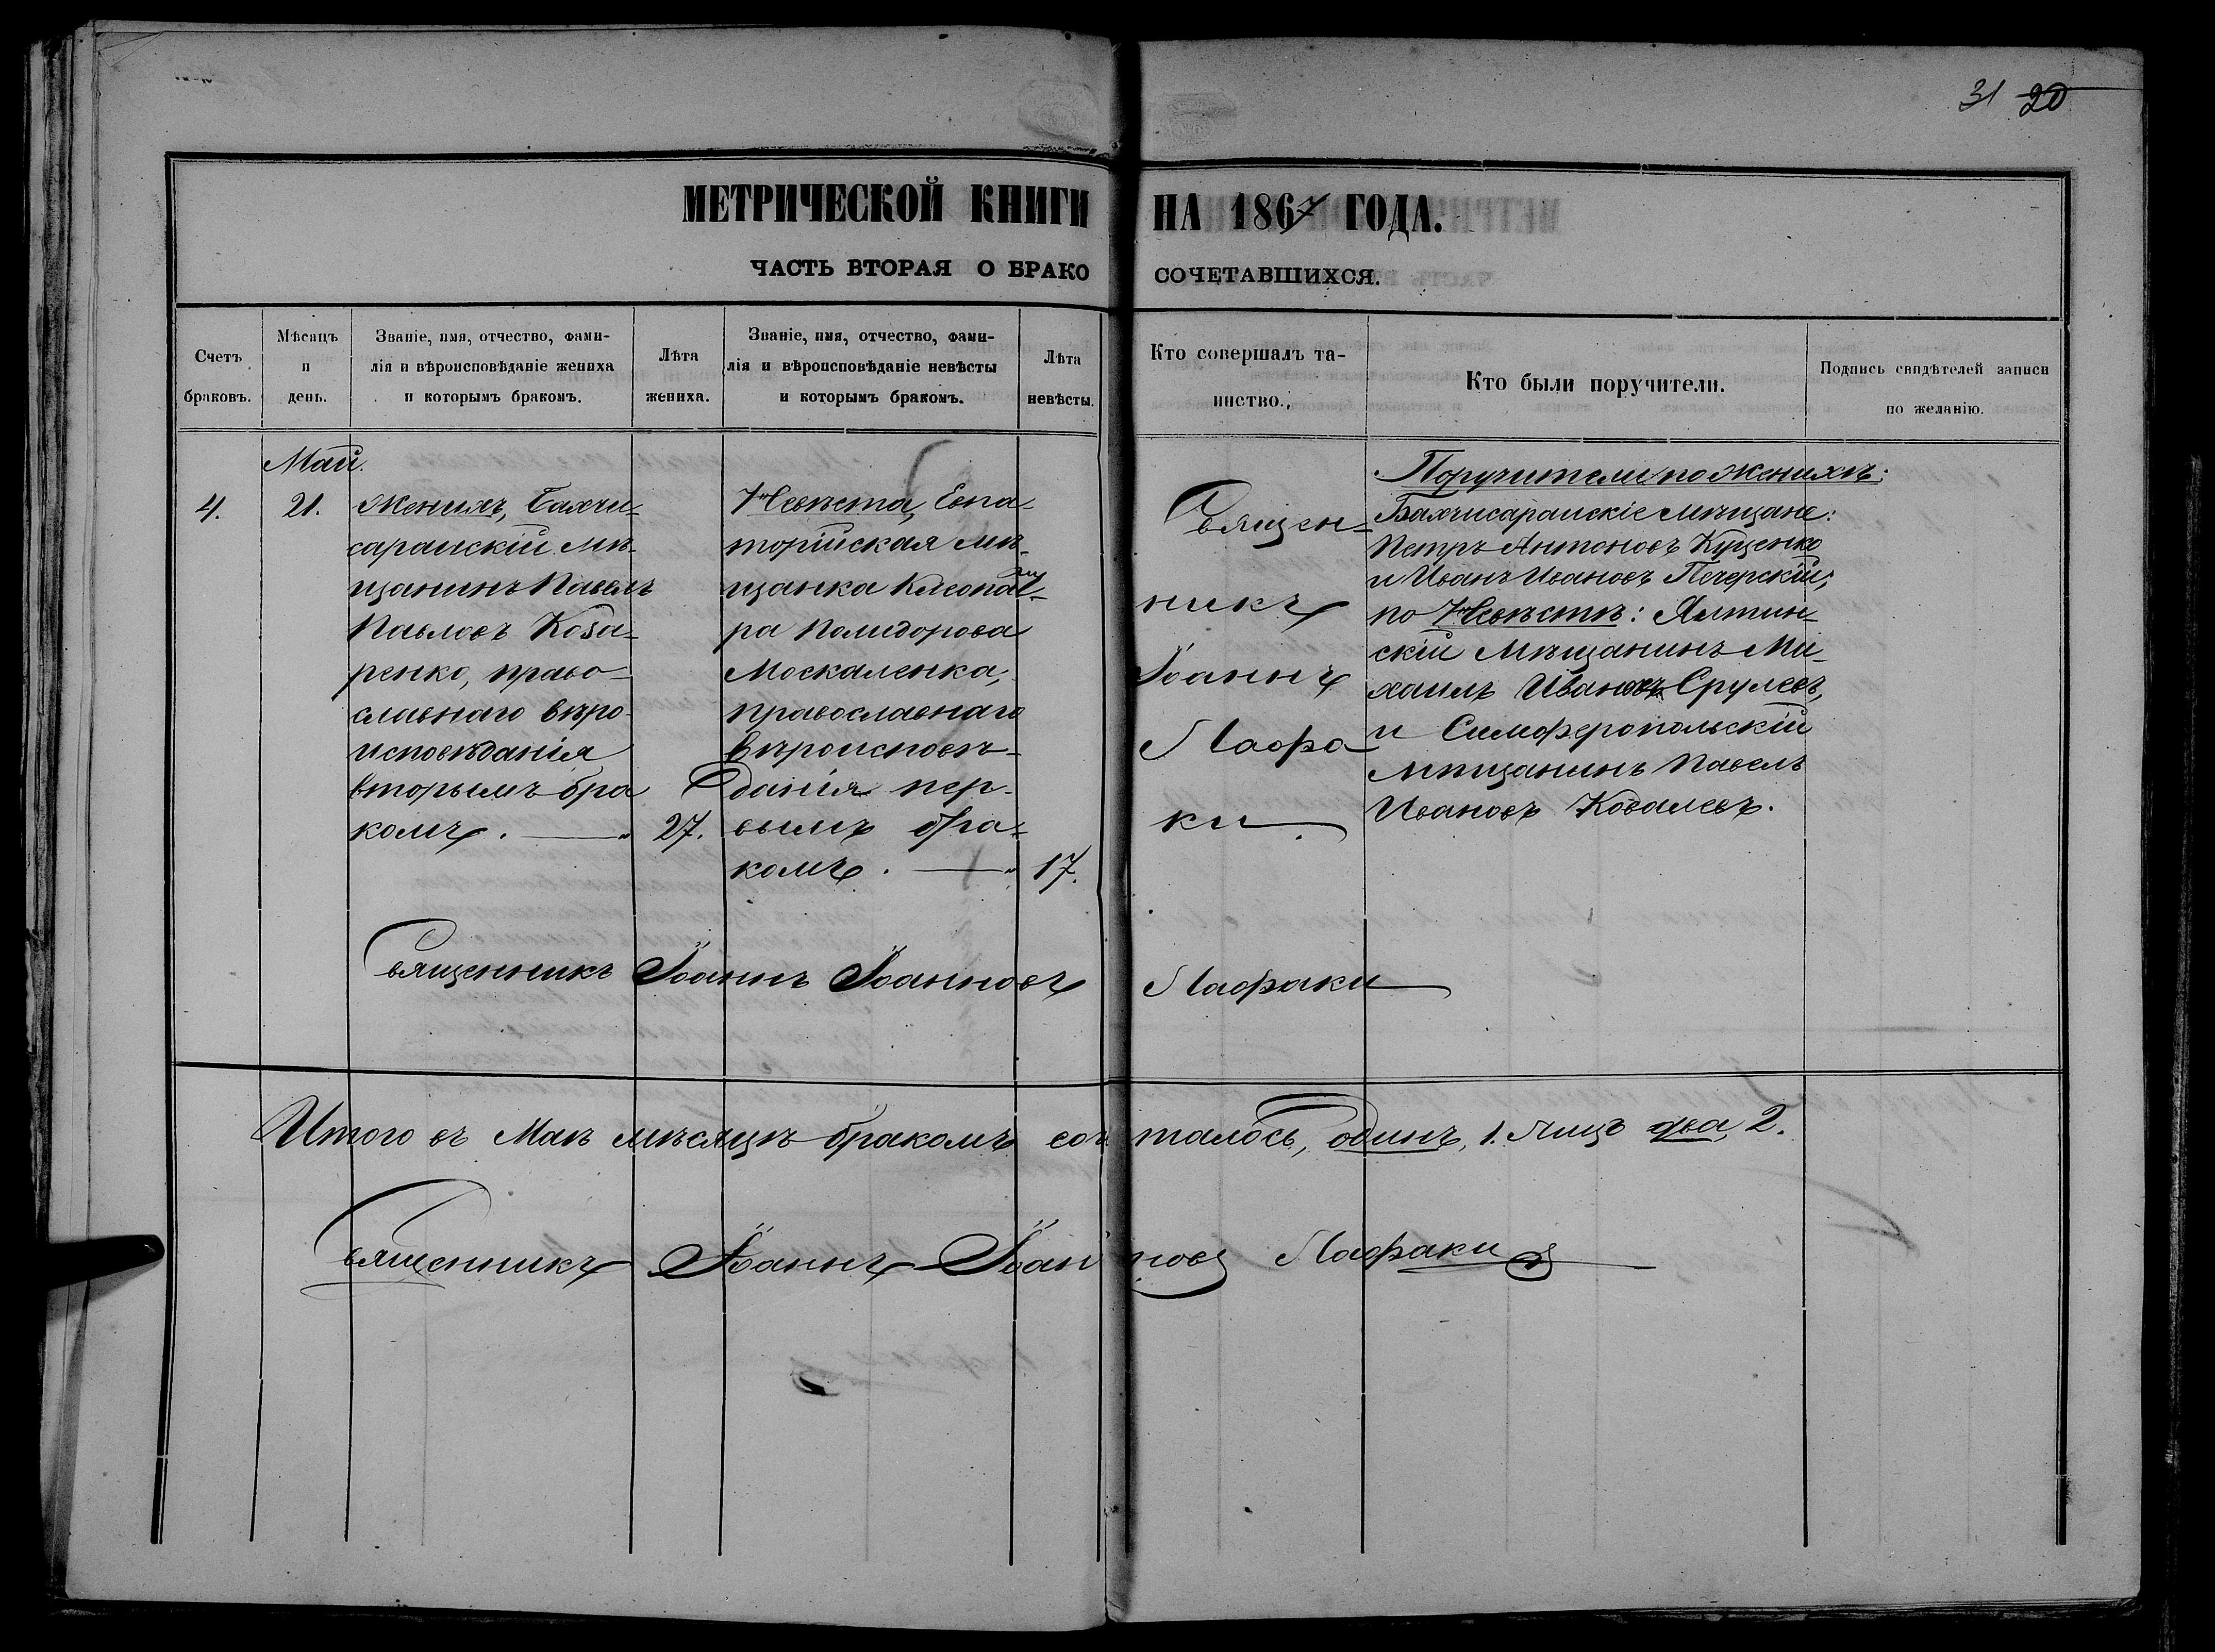 31 20
МЕТРИЧЕСКОЙ КНИГИ НА 1867 ГОДА.
ЧАСТЬ ВТОРАЯ О БРАКОСОЧЕТАВШИХСЯ.
Счетъ
браковъ.
Мѣсяцъ
и
день.
Званіе, имя, отчество, фами-
лія и вѣроисповѣданіе жениха
и которымъ бракомъ.
Лѣта
жениха.
Званіе, имя, отчество, фами-
лія и вѣроисповѣданіе невѣсты
и которымъ бракомъ.
Лѣта
невѣсты.
Кто совершалъ та-
инство.
Кто были поручители.
Подпись свидѣтелей записи
по желанію.
4.
Май.
21.
Женихъ, Бахчи-
сарайскій мѣ-
щанинъ Павелъ
Павловъ Коза-
ренко, право-
славнаго вѣро-
исповѣданія
вторымъ бра
комъ.
27.
Невѣста, Евпа-
торійская мѣ-
щанка Клеопат-
ра Полидорова
Москаленка,
православнаго
вѣроисповѣ-
данія пер-
вымъ бра-
комъ.
17.
Священ-
никъ
Іоаннъ
Лафа
ки.
Поручители по женихѣ:
Бахчисарайскіе мѣщане:
Петръ Антоновъ Куценко
и Иванъ Ивановъ Печерскій;
по Невѣстѣ: Ялтин-
скій Мѣщанинъ Ми-
хаилъ Ивановъ Срулевъ,
и Симферопольскій
мѣщанинъ Павелъ
Ивановъ Ковалевъ.
Священникъ Іоаннъ Іоанновъ Лафаки
Итого въ Маѣ мѣсяцѣ бракомъ сочеталось, одинъ, 1. лицъ два, 2.
Священникъ Іоаннъ Іоанновъ Лафаки